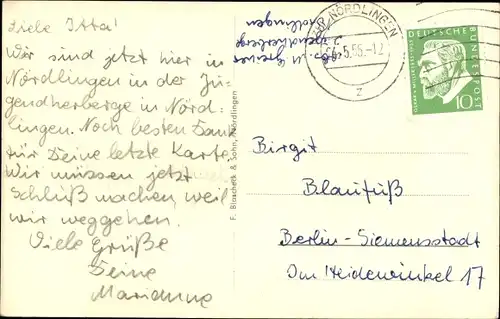 Liebe Itta!
Wir sind jetzt hier in
Nördlingen in der Ju-
gendherberge in Nörd-
lingen. Noch besten Dank
für Deine letzte Karte
Wir müssen jetzt
Schluß machen, weil
wir weggehen.
Viele Grüße
Deine
Marianne
F. Bloscheck & Sohn, Nördlingen
Jugendherberge
NÖRDLINGEN
.5.55.-12
z
DEUTSCHE BUNDESPOST
OSKAR V. MILLER
10
Birgit
Blaufuß
Berlin-Siemensstadt
Im Heidewinkel 17